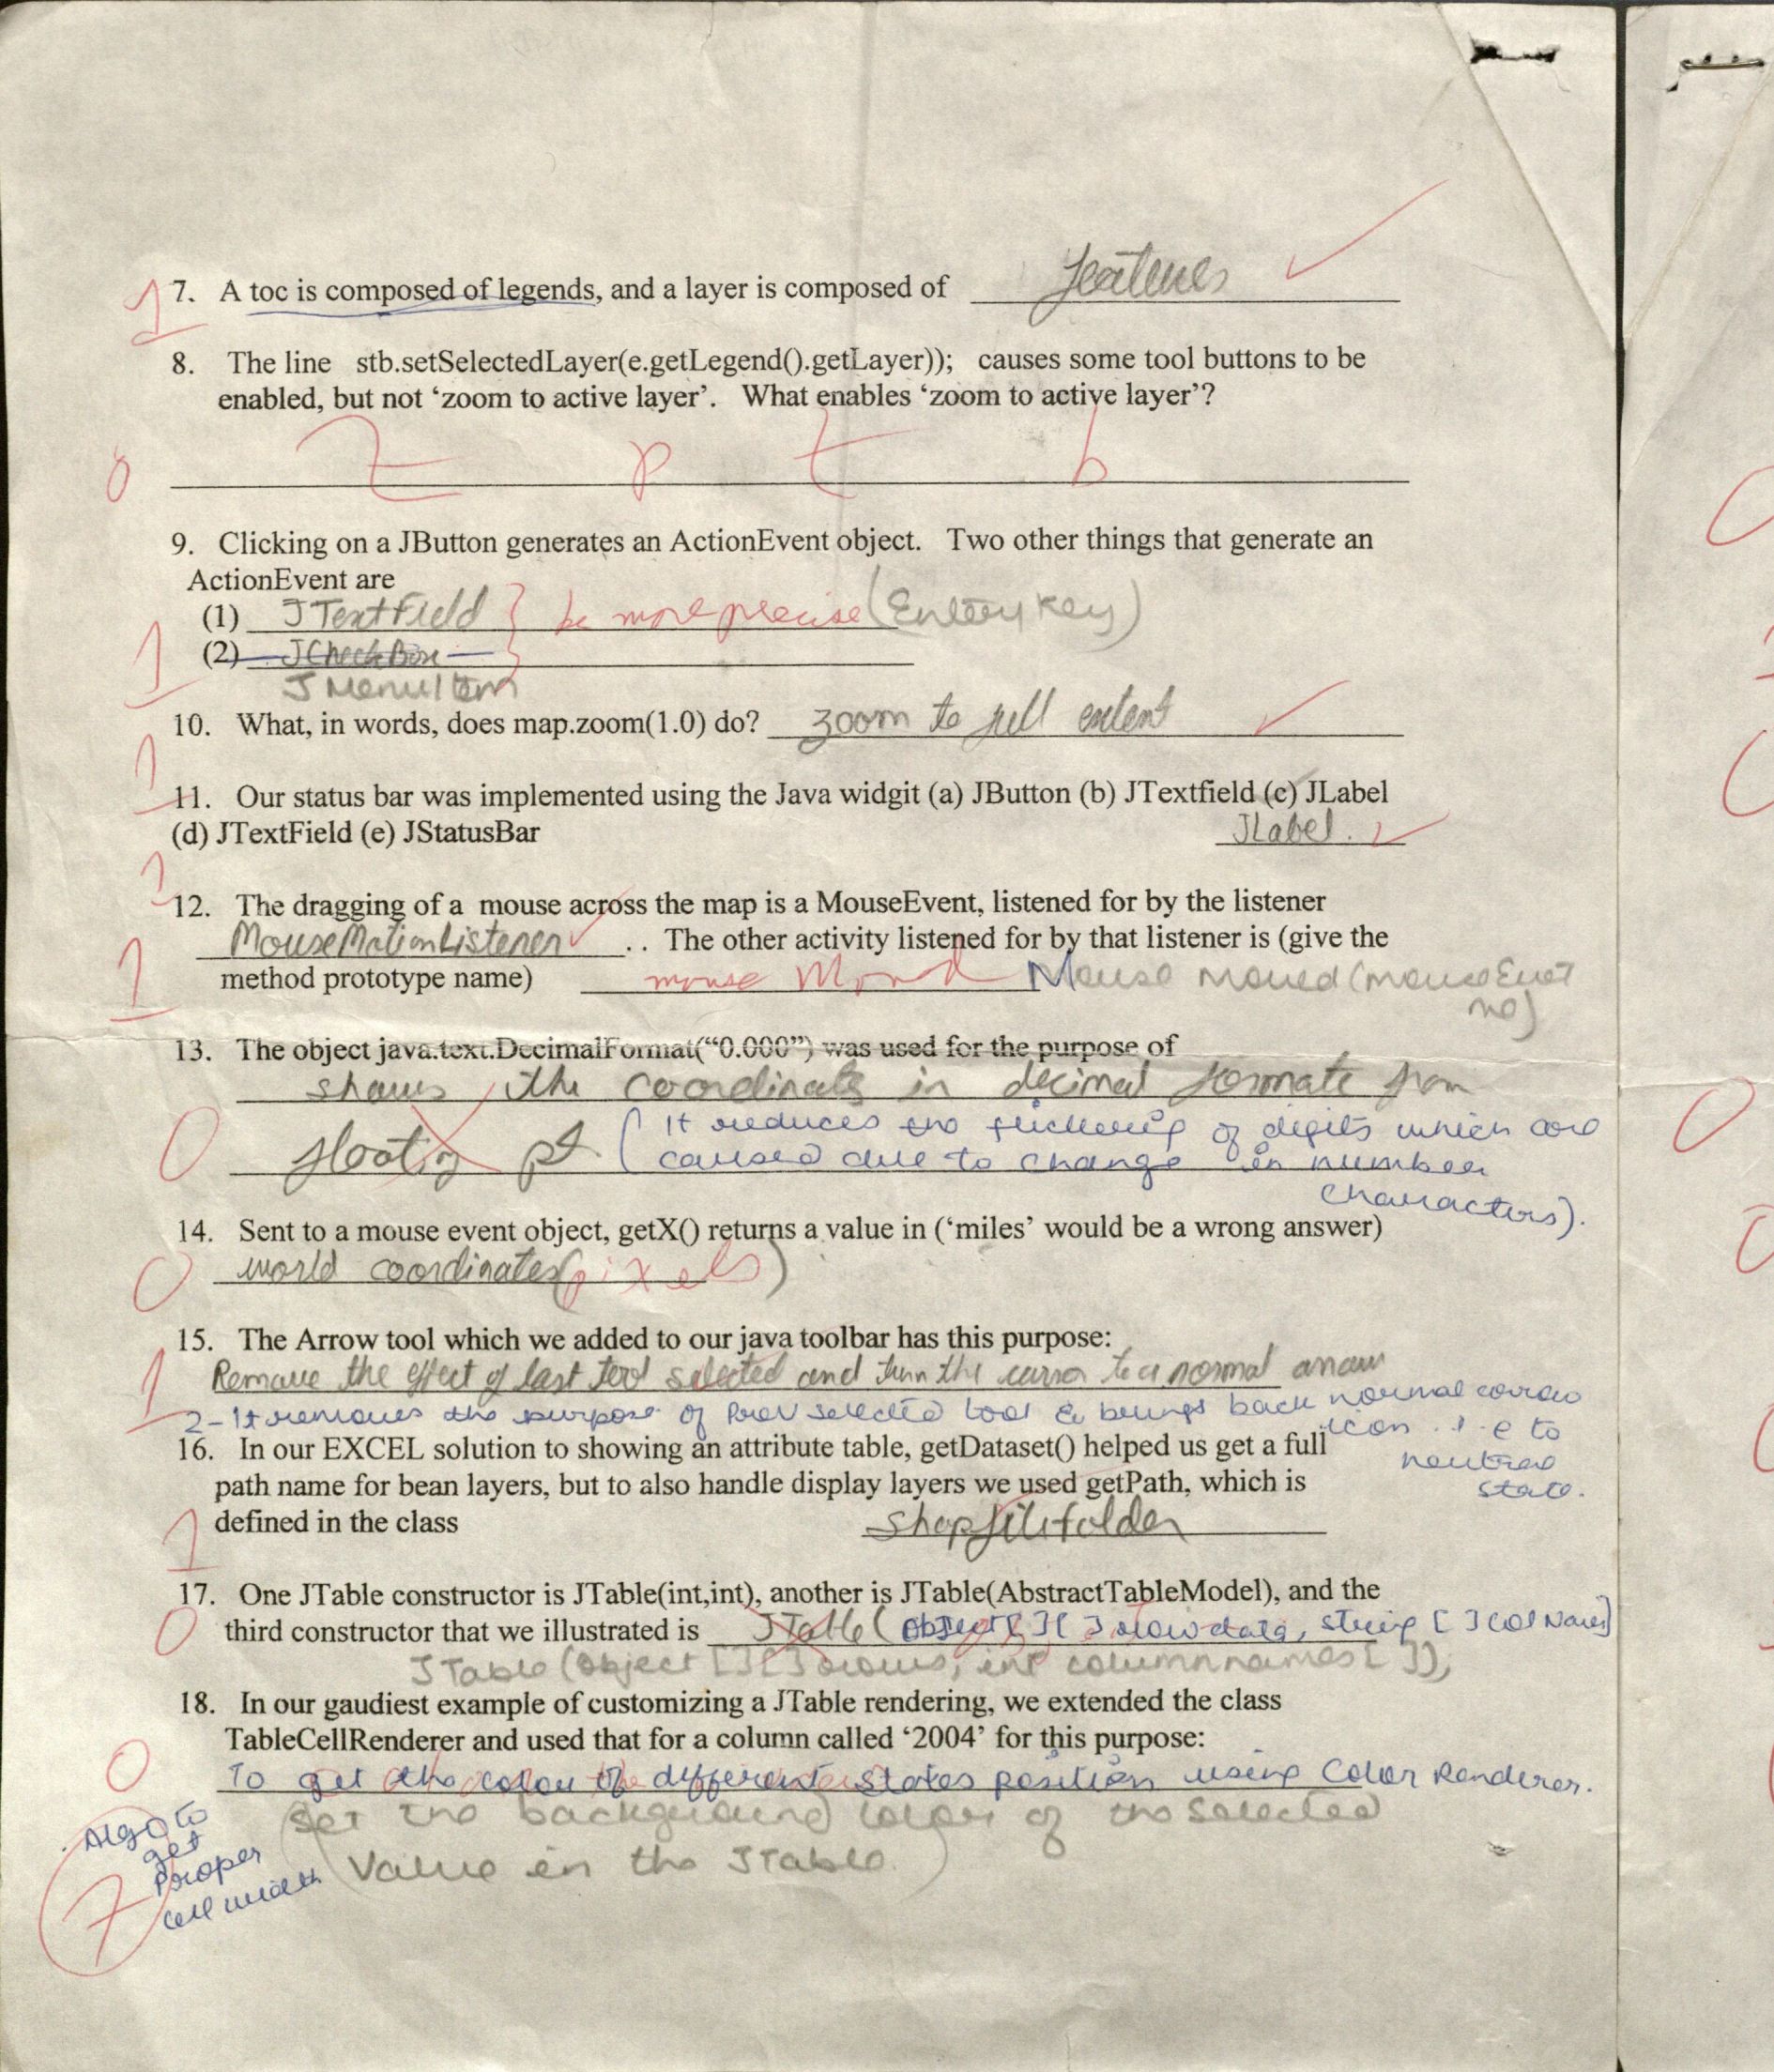 1 7. A toc is composed of legends, and a layer is composed of features
8. The line stb.setSelectedLayer(e.getLegend().getLayer)); causes some tool buttons to be
enabled, but not ‘zoom to active layer’. What enables ‘zoom to active layer’?
0 z p t b
9. Clicking on a JButton generates an ActionEvent object. Two other things that generate an
ActionEvent are
(1) JTextField } be more precise (Enter key)
1 (2) JCheckBox
JMenuItem
10. What, in words, does map.zoom(1.0) do? zoom to full extent
1
11. Our status bar was implemented using the Java widgit (a) JButton (b) JTextfield (c) JLabel
(d) JTextField (e) JStatusBar JLabel.
1
12. The dragging of a mouse across the map is a MouseEvent, listened for by the listener
MouseMotionListener .. The other activity listened for by that listener is (give the
1 method prototype name) mouse Moved Mouse Moved (mouseEvent
me)
13. The object java.text.DecimalFormat(“0.000”) was used for the purpose of
shows the coordinates in decimal formate from
0 floating pt (It reduces the flickering of digits which are
caused due to change in number
characters).
14. Sent to a mouse event object, getX() returns a value in (‘miles’ would be a wrong answer)
0 world coordinates (pixels)
15. The Arrow tool which we added to our java toolbar has this purpose:
1 Remove the effect of last tool selected and turn the cursor to a normal arrow
2- It removes the purpose of prev selected tool & brings back normal
icon i.e to
neutral
state.
16. In our EXCEL solution to showing an attribute table, getDataset() helped us get a full
path name for bean layers, but to also handle display layers we used getPath, which is
1 defined in the class shapfilefolder
17. One JTable constructor is JTable(int,int), another is JTable(AbstractTableModel), and the
0 third constructor that we illustrated is JTable (Object[][] rowdata, string [] colNames]
JTable (Object [][] rows, int columnnames[]);
18. In our gaudiest example of customizing a JTable rendering, we extended the class
TableCellRenderer and used that for a column called ‘2004’ for this purpose:
0 To get the colour of different states position using Color Renderer.
(Set the background color of the selected
Value in the JTable)
Algo to
get
proper
cell width
7